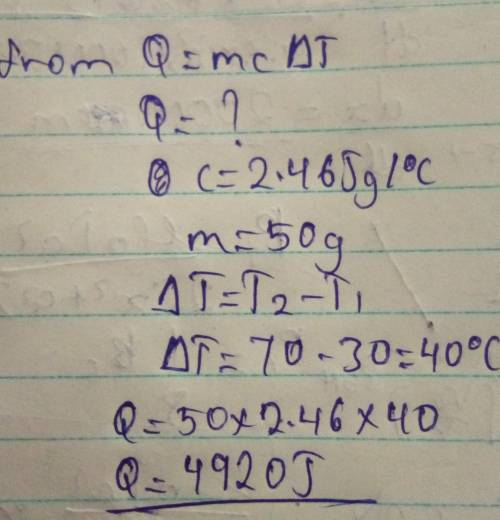 from Q = mc ΔT
Q = ?
c = 2.46Jg/°C
m = 50g
ΔT = T₂ - T₁
ΔT = 70 - 30 = 40°C
Q = 50 × 2.46 × 40
Q = 4920J